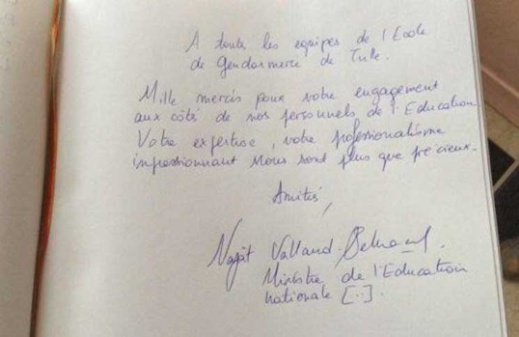 A toute les equipes de l'Ecole
de Gendarmerie de Tulle.
Mille mercis pour votre engagement
aux côté de nos personnels de l'Education.
Votre expertise, votre professionalisme
impressionnant nous sont plus que précieux.
Amitiés,
Najat Vallaud-Belkacem.
Ministre de l'Education
nationale [...].